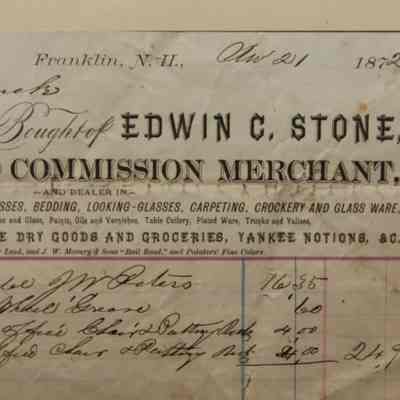 Franklin, N. H., Nov 21 1872
Bought of EDWIN C. STONE,
COMMISSION MERCHANT,
—AND DEALER IN—
SSES, BEDDING, LOOKING-GLASSES, CARPETING, CROCKERY AND GLASS WARE,
and Glass, Paints, Oils and Varnishes. Table Cutlery, Plated Ware, Trunks and Valises,
E DRY GOODS AND GROCERIES, YANKEE NOTIONS, &C.
Lead, and J. W. Masury & Sons "Rail Road," and Painters' Fine Colors.
J W Peters 16 35
Wheel Grease 60
Chair & Putting 4.00
Chair & Putting 4.00 24.9